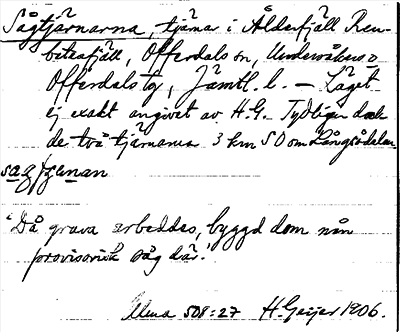 Sågtjärnarna, tjärnar i Ålderfjäll Ren-
betesfjäll, Offerdals sn, Undersåkers o
Offerdals tg, Jämtl. l. – Läget
ej exakt angivet av H.G. Tydligen dock
de två tjärnarna 3 km SO om Långsådalen
"Då gruva arbeddes, byggd dom nån
provisorisk såg där."
Ulma 508:27 H. Geijer 1906.